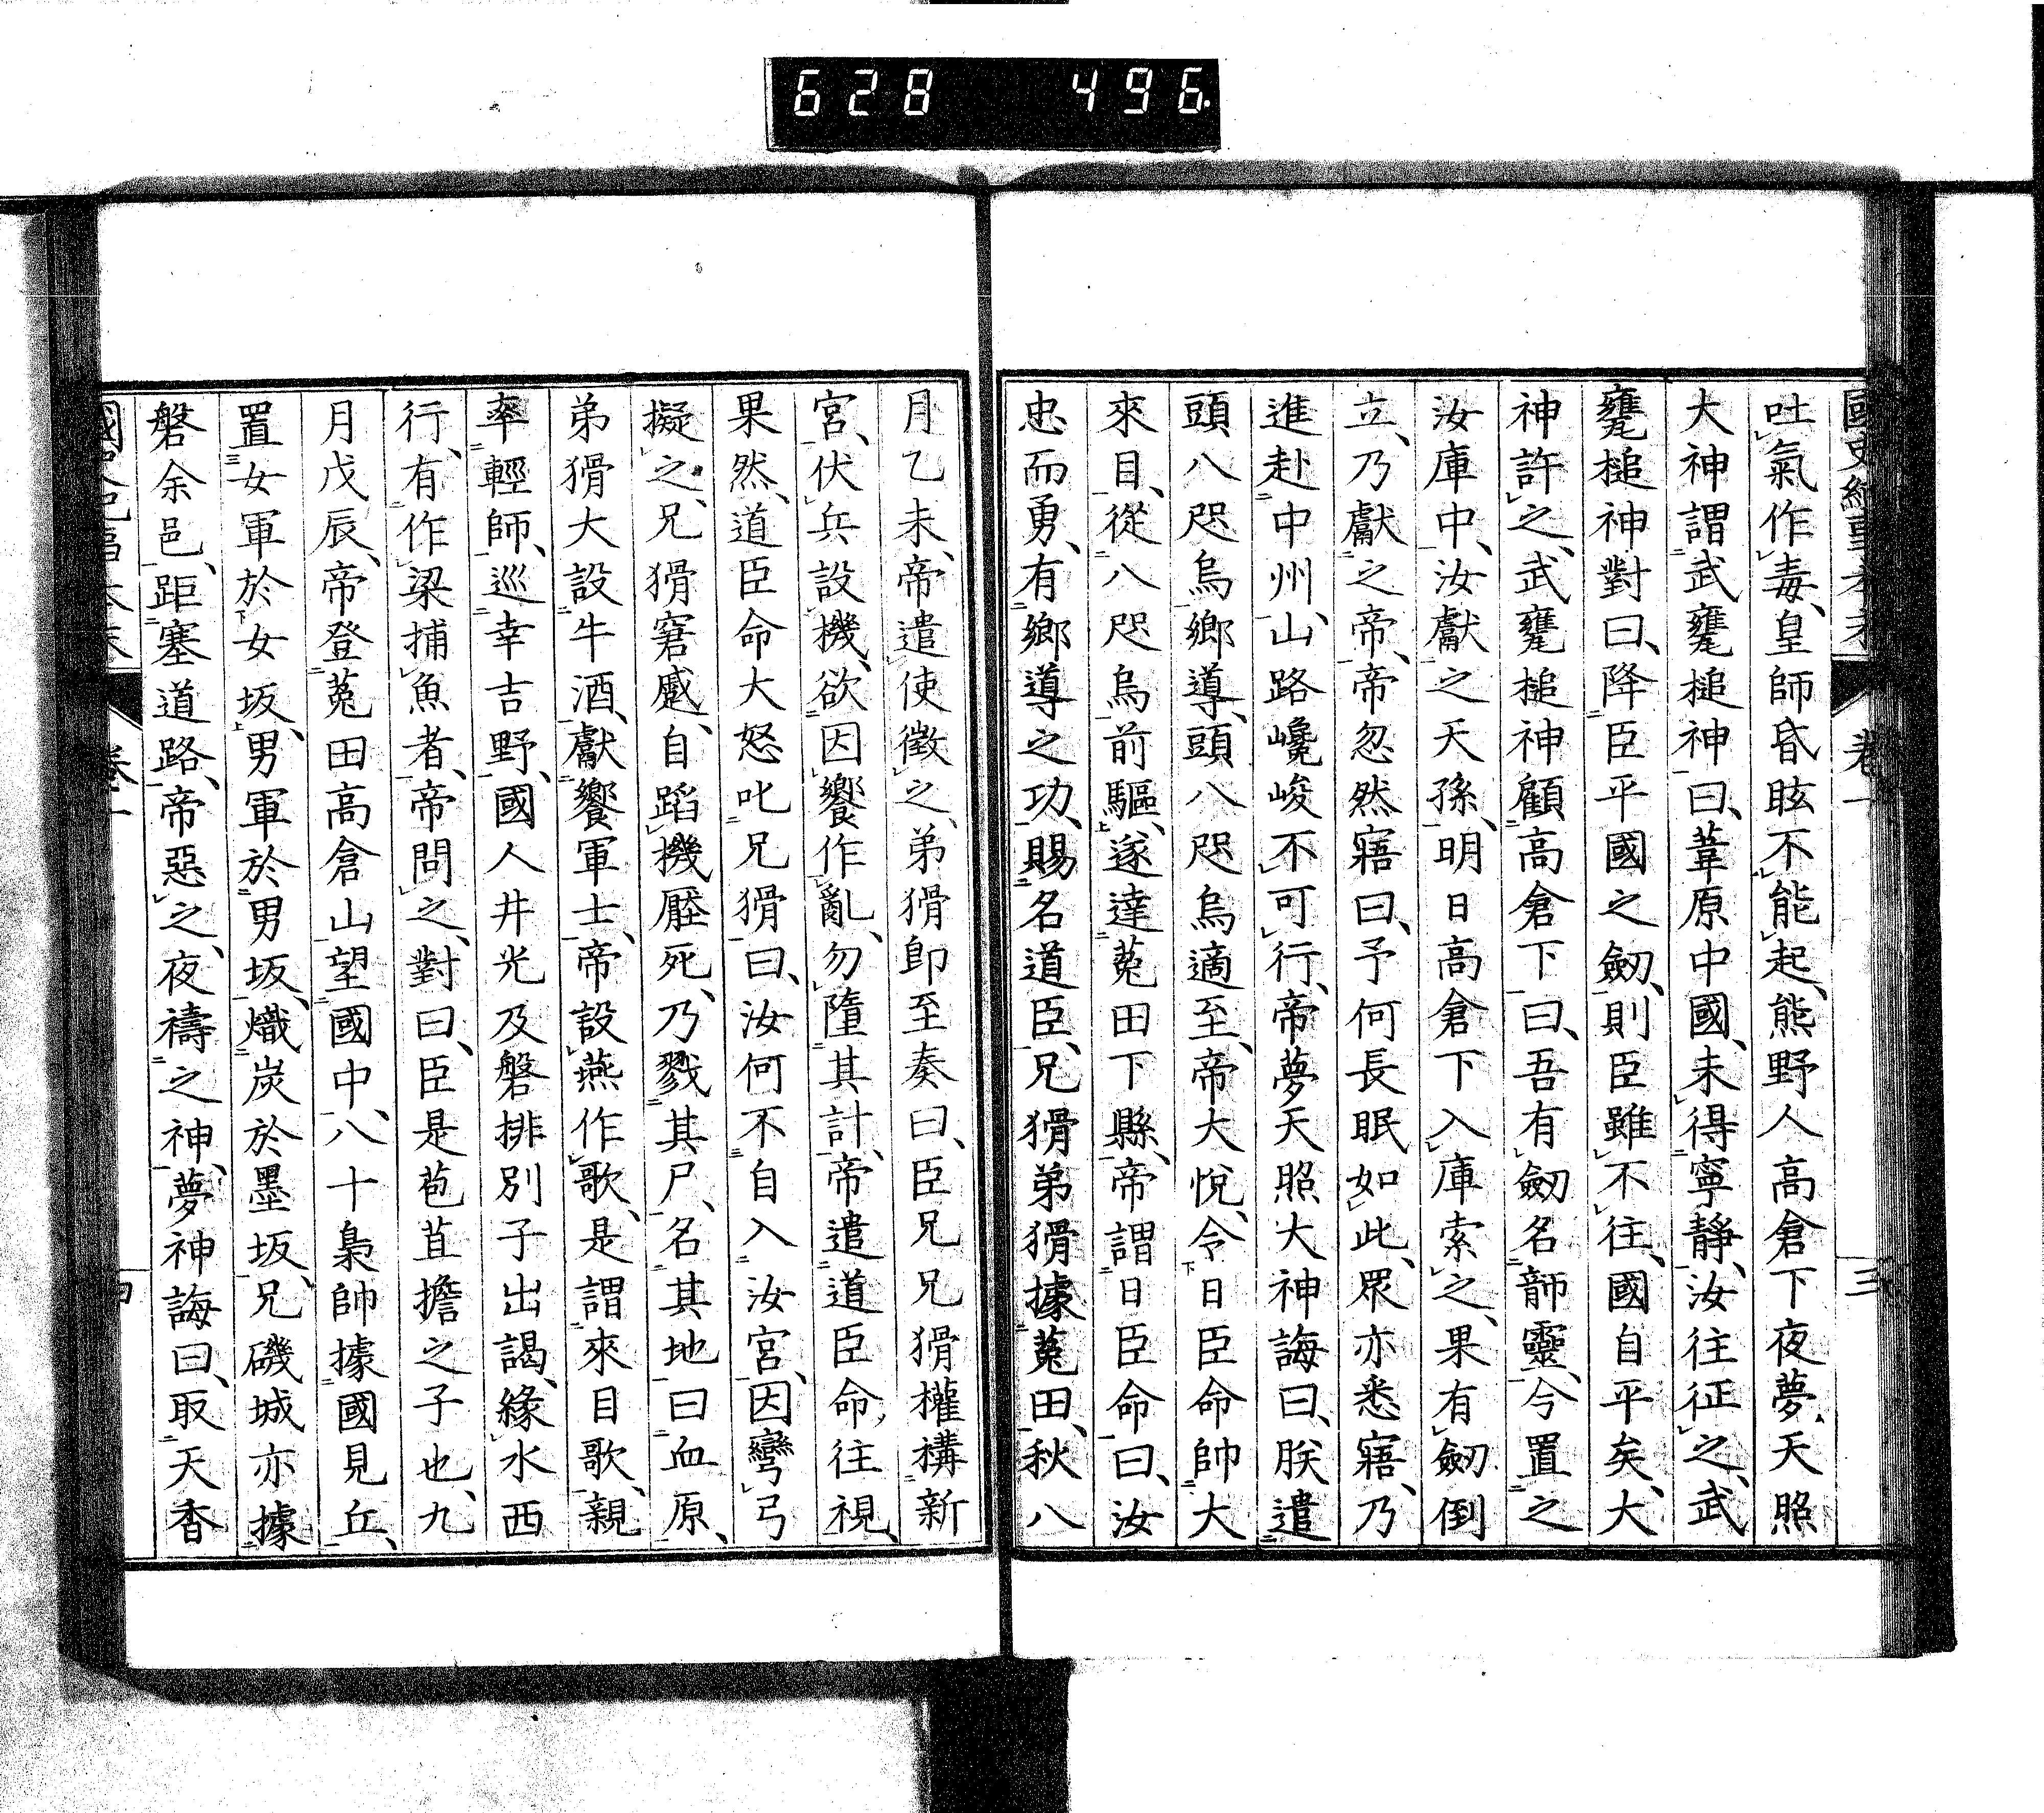 628 496.
國史紀事本末 卷一 三
吐氣作毒、皇師昏眩不能起、熊野人高倉下夜夢、天照
大神謂武甕槌神曰、葦原中國、未得寧靜、汝往征之、武
甕槌神對曰、降臣平國之劒、則臣雖不往、國自平矣、大
神許之、武甕槌神顧高倉下曰、吾有劒名韴靈、今置之
汝庫中、汝獻之天孫、明日高倉下入庫索之、果有劒倒
立、乃獻之帝、帝忽然寤曰、予何長眠如此、眾亦悉寤、乃
進赴中州、山路巉峻、不可行、帝夢天照大神誨曰、朕遣
頭八咫烏鄉導、頭八咫烏適至、帝大悅、令日臣命帥大
來目、從八咫烏前驅、遂達菟田下縣、帝謂日臣命曰、汝
忠而勇、有鄉導之功、賜名道臣、兄猾弟猾據菟田、秋八
月乙未、帝遣使徵之、弟猾卽至奏曰、臣兄兄猾權構新
宮、伏兵設機、欲因饗作亂、勿墮其計、帝遣道臣命往視、
果然、道臣命大怒叱兄猾曰、汝何不自入汝宮、因彎弓
擬之、兄猾窘蹙、自蹈機壓死、乃戮其尸、名其地曰血原、
弟猾大設牛酒、獻饗軍士、帝設燕作歌、是謂來目歌、親
率輕師、巡幸吉野、國人井光及磐排別子出謁、緣水西
行、有作梁捕魚者、帝問之、對曰、臣是苞苴擔之子也、九
月戊辰、帝登菟田高倉山、望國中、八十梟帥據國見丘、
置女軍於女坂、男軍於男坂、熾炭於墨坂、兄磯城亦據
磐余邑、距塞道路、帝惡之、夜禱之神、夢神誨曰、取天香
卷一 四